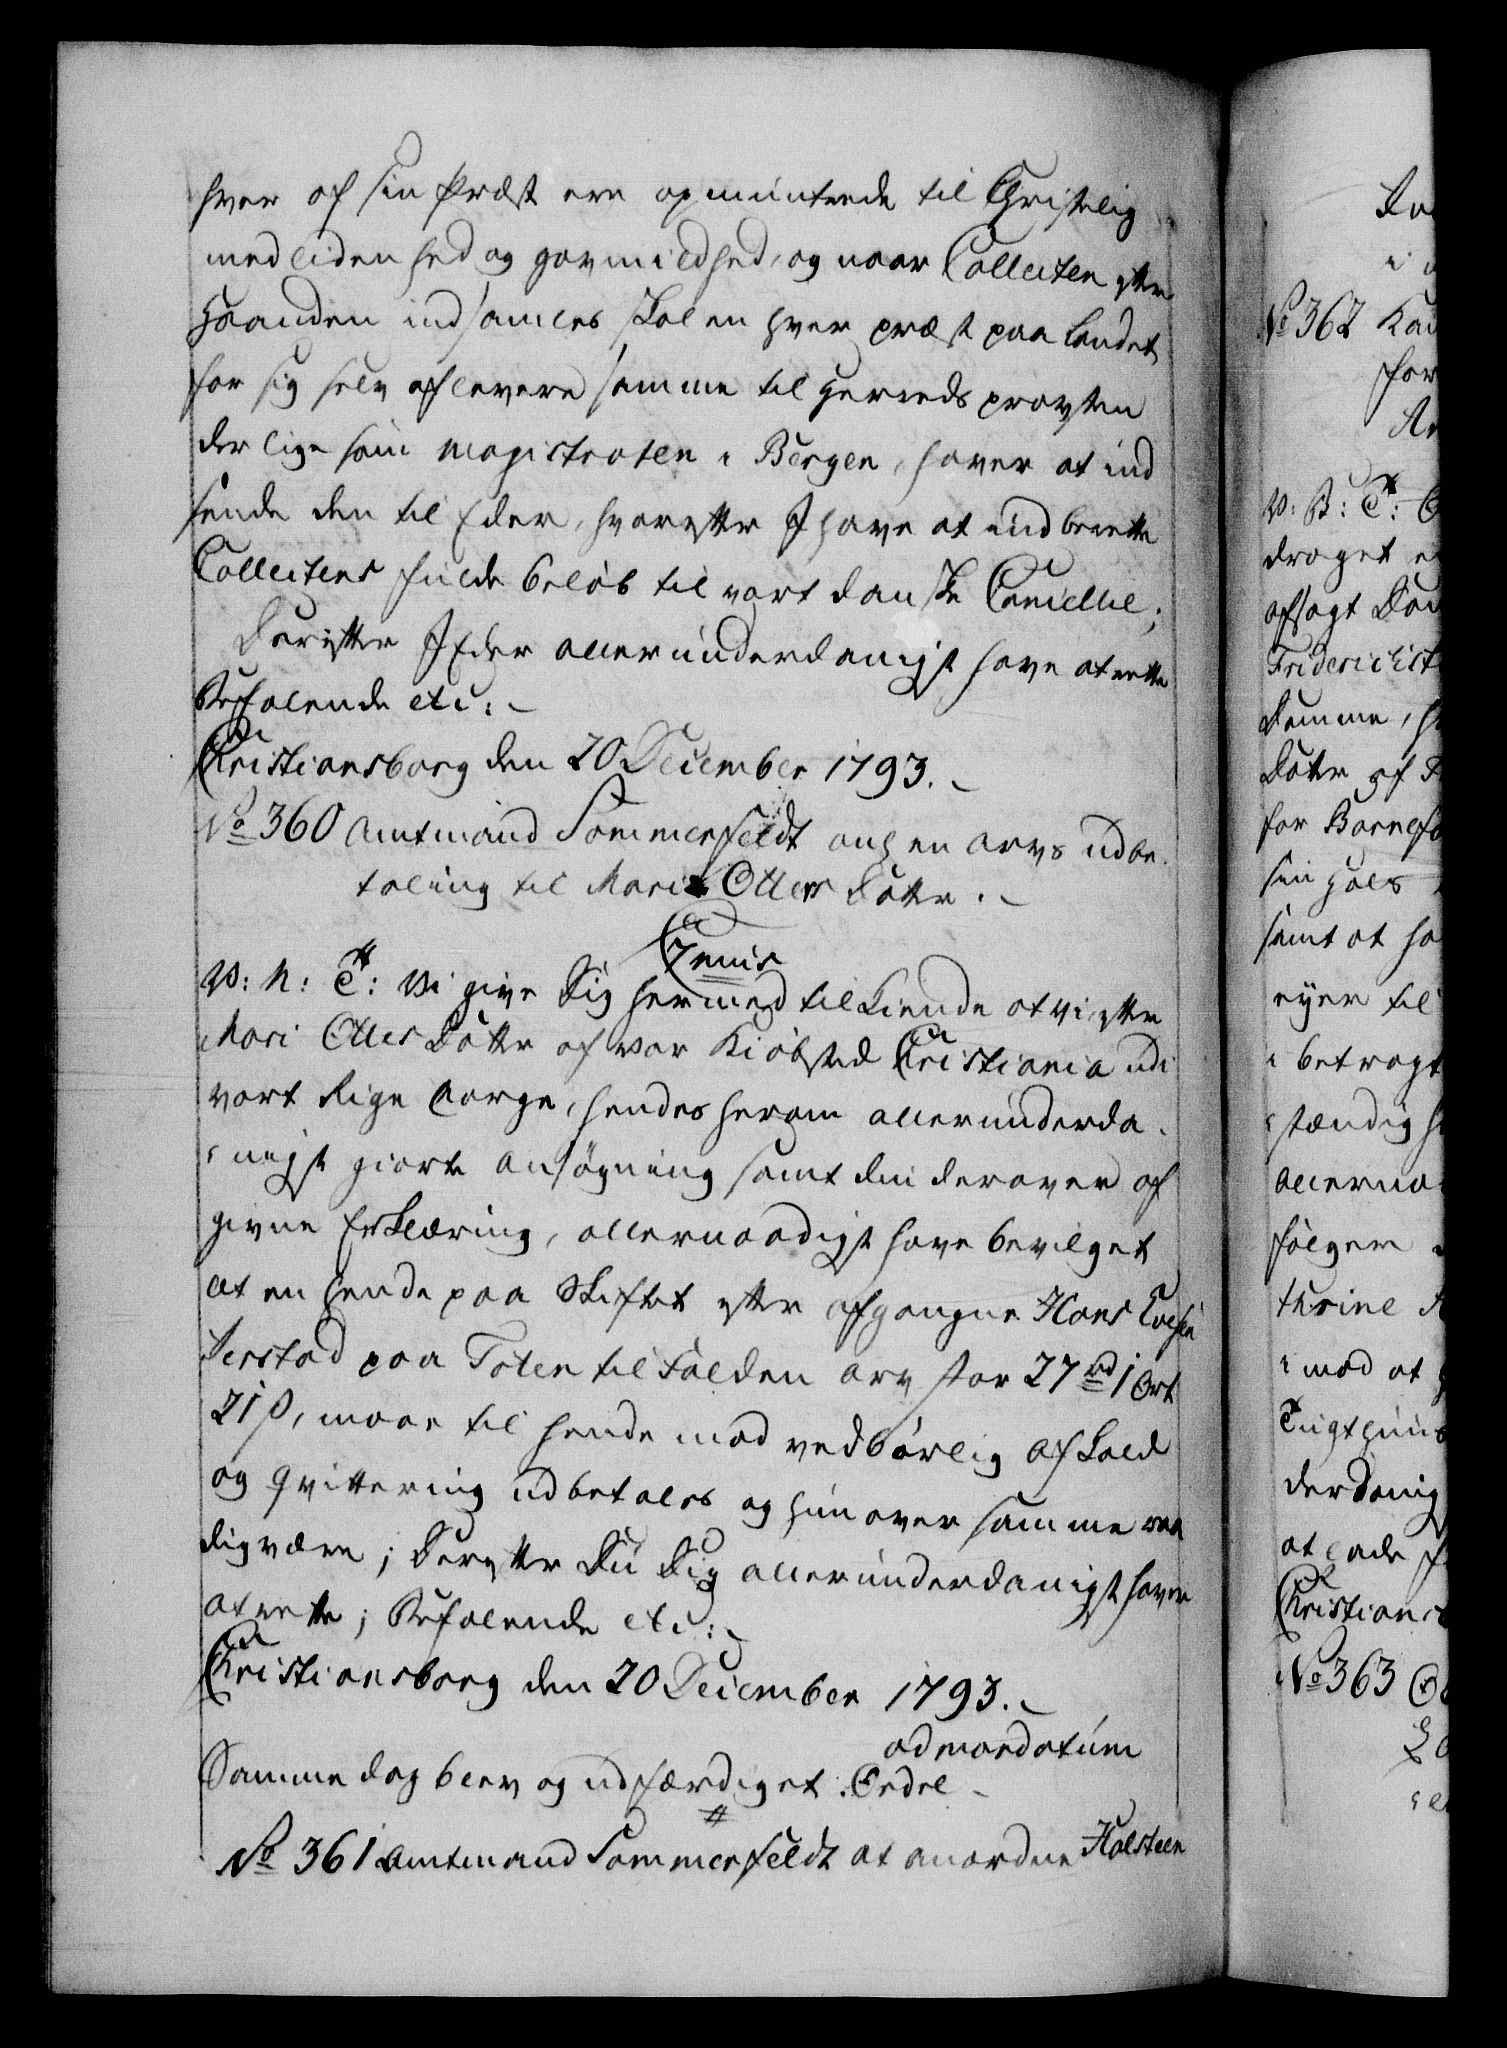 hver af sin Præst ere opmuntrede til Christelig
medlidenhed og gavmildhed, og naar Collecten efter
Haanden indsamles skal en hver præst paa Landet
for sig selv aflevere samme til Herreds provsten
der lige som magistraten i Bergen, haver at ind
sende den til Eder, hvorefter I have at indberette
Collectens fulde beløb til vort danske Cancellie;
Derefter I Eder allerunderdanigst have at rette
Befalende etc:
Christiansborg den 20 December 1793.
No 360 Amtmand Sommerfeldt ang en arvs udbe
taling til Mari Olles Datter.
Gratis
V: A: T: Vi give Dig hermed tilkiende at vi, efter
Mari Olles Datter af vor Kiøbsted Christiania udi
vort Rige Norge, hendes herom allerunderda
nigst giorte ansøgning samt din derover af
givne Erklæring, allernaadigst have bevilget
at en hende paa Skiftet efter afgangne Hans
paa Toten tilfalden arv stor 27 rd 1 ort
21 ß, maae til hende mod vedbørlig afkald
og qvittering udbetales og hun over samme raa
dig være; Derefter Du Dig allerunderdanigst haver
at rette; Befalende etc:
Christiansborg den 20 December 1793.
ad mandatum
Samme dag blev og udfærdiget. Ordre
No 361 Amtmand Sommerfeldt at anordne Holsteen
No 362
for
V: B: T:
draget
afsagt
Fridericist
Domme,
Datter af
for Barnefø
sin Hals
samt at
eyer til
i betragt
stændig
allerna
følgen
thrine
i mod at
Tugthuus
derdanig
at lade
Christiansb
No 363